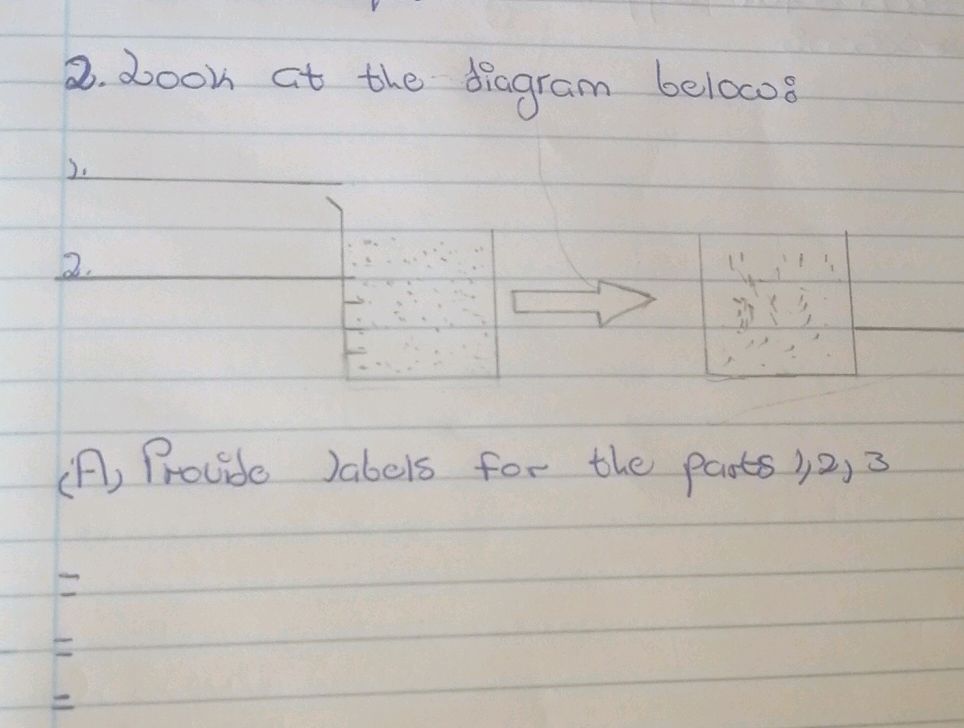 2. Look at the diagram below:
1.
2.
(A) Provide labels for the parts 1, 2, 3
=
=
=